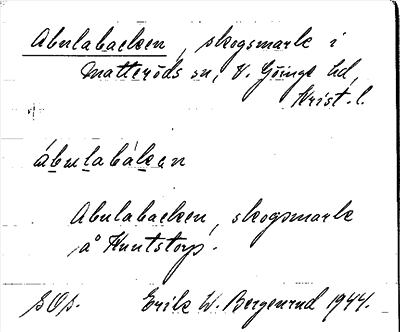 Abulabacken, skogsmark i
Matteröds sn, V. Göinge hd,
Krist. l.
ábulabákan
Abulabacken, skogsmark
på Huntstorp.
SOs. Erik W. Bergenrud 1944.